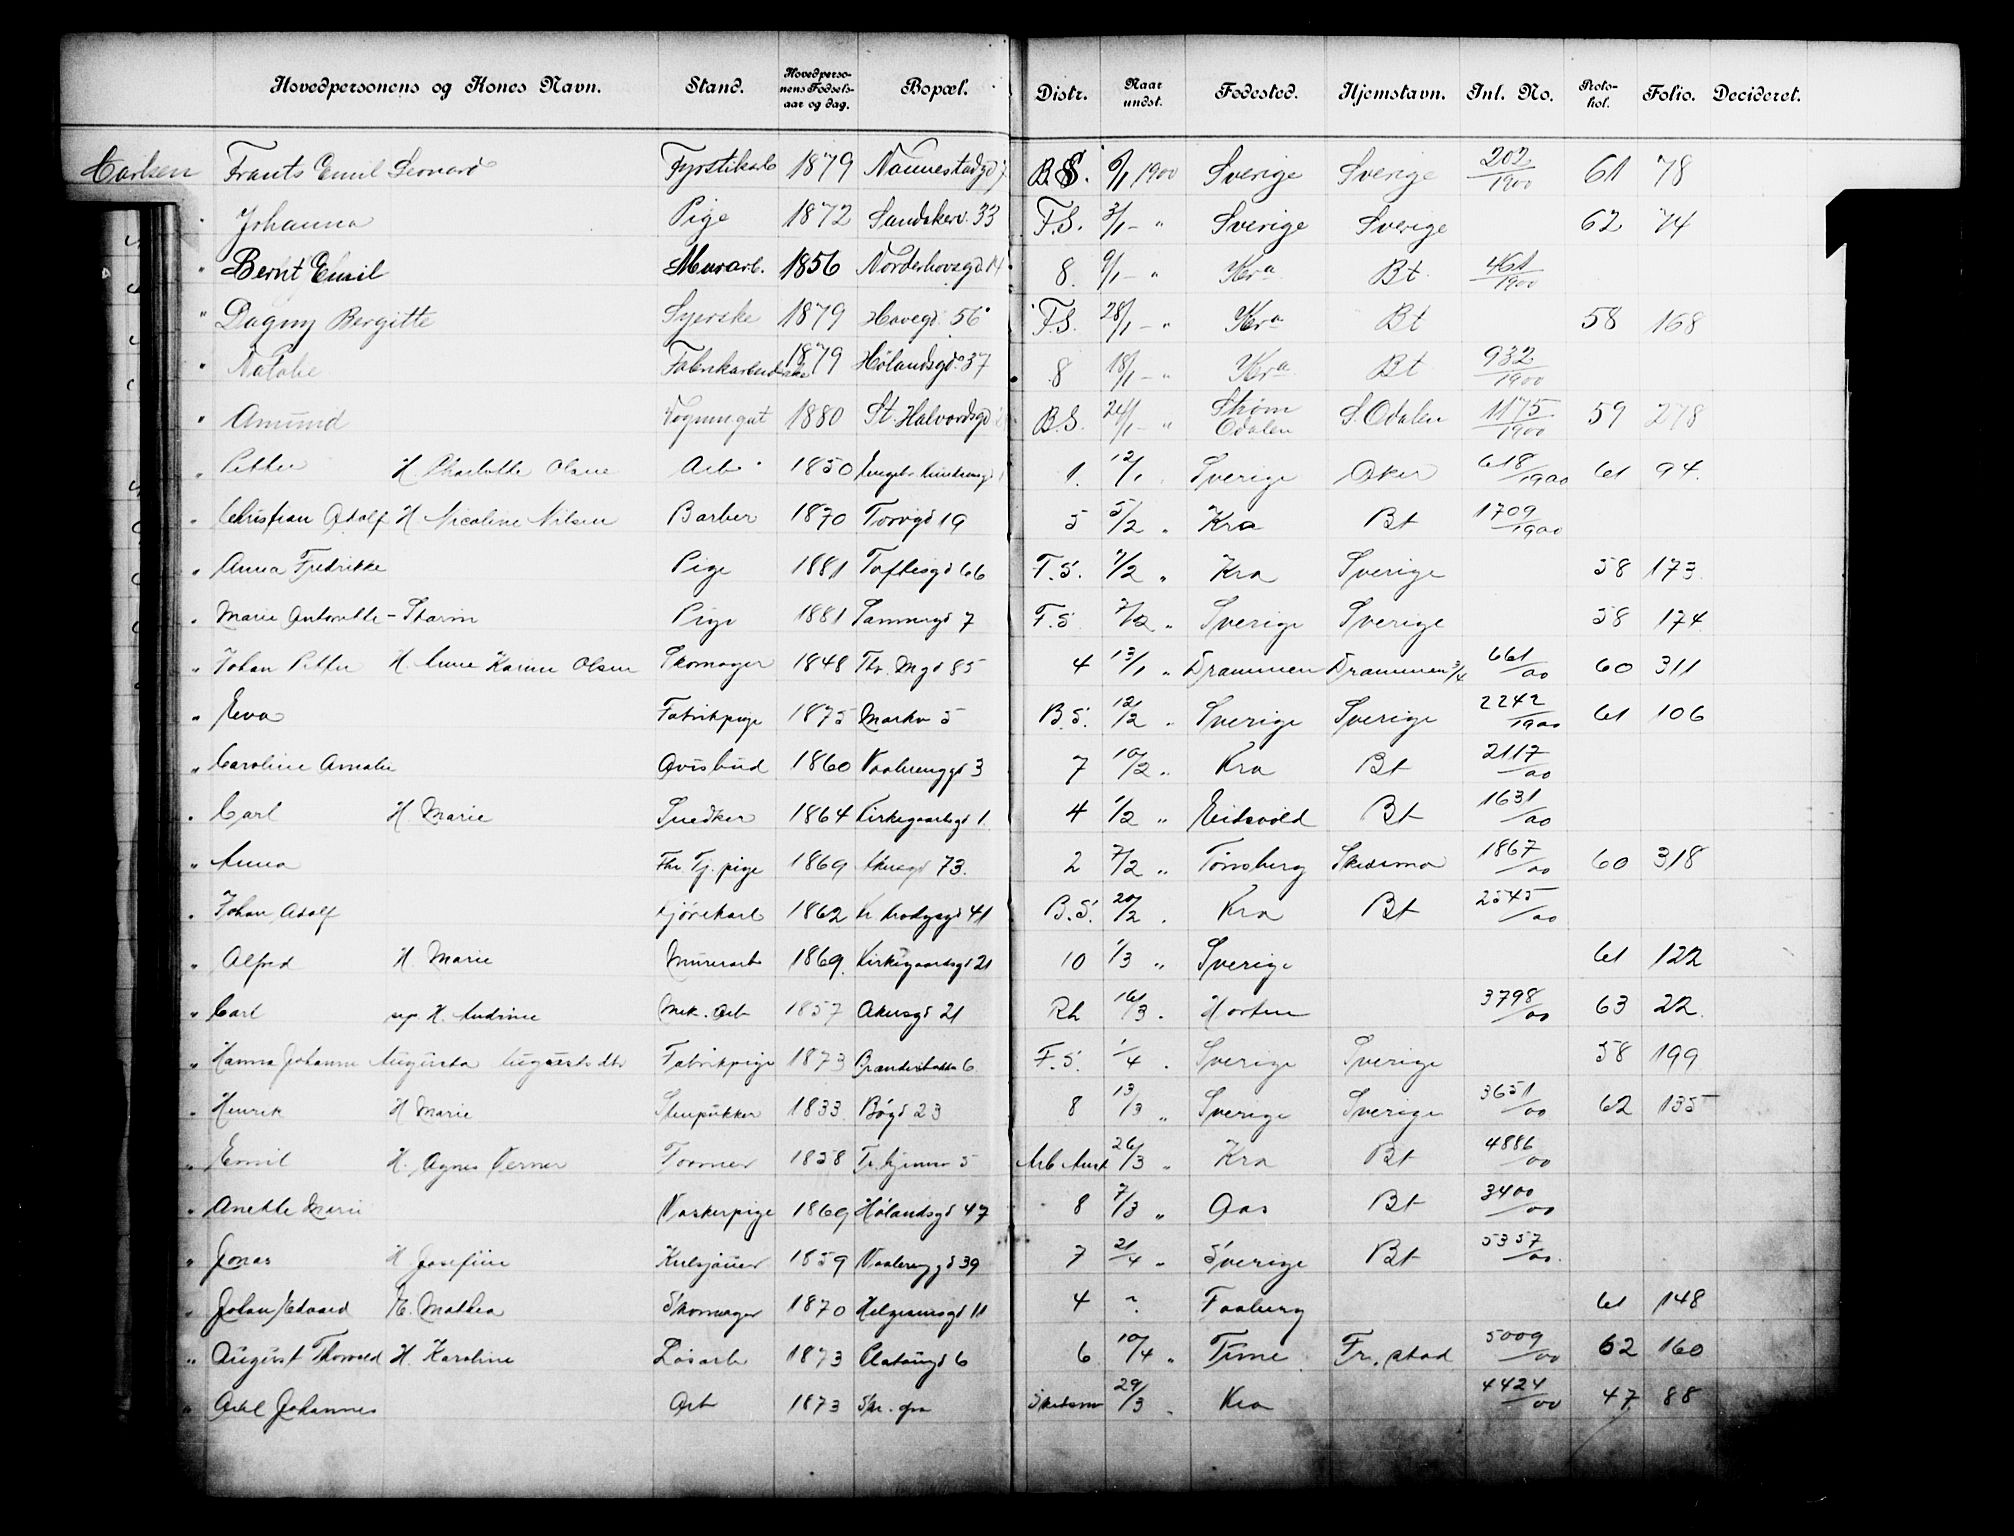 Hovedpersonens og Kones Navn. Stand. Hovedperso-nens Fødsels-aar og dag. Bopæl. Distr. Naar undst. Fødested. Hjemstavn. Inl. No. Proto-kol. Folio. Decideret.
Carlsen Frants Emil Leonard 1879 Nannestadgd 7 B.S. 6/1 1900 Sverige Sverige 202/1900 61 78
" Johanna Pige 1872 Sandakerv. 33 F.S. 3/1 - " Sverige Sverige 62 74
" Bernt Emil Murarb. 1856 Norderhovsgd 14 8. 9/1 - " Kra Bt 461/1900
" Dagny Bergitte Syerske 1879 Havegd. 56 F.S. 28/1 - " Kra Bt 58 168
" Natalie 1879 Hølandsgd. 37 8 18/1 - " Kra Bt 932/1900
" Amund Vognmgut 1880 St. Halvardsgd B.S. 24/1 - " Strøm Odalen S. Odalen 1175/1900 59 278
" Petter H. Charlotte Olsen Arb. 1850 1. 12/1 Sverige Aker 618/1900 61 94.
" Christian Adolf H. Nicoline Nilsen Barber 1870 Torvgd 19 5 5/2 " Kra Bt 1709/1900
" Anna Fredrikke Pige 1881 Toftesgd 66 F.S. 7/2 " Kra Sverige 58 173
" Marie Antonette - Pige 1881 7 F.S. 7/2 " Sverige Sverige 58 174.
" Johan Petter H. Anne Karine Olsen Skomager 1848 Thv. Mgd 85 4 13/1 " Drammen Drammen 3/4 661/00 60 311
" Eva Fabrikpige 1875 Markv 5 B.S. 12/2 " Sverige Sverige 2242/1900 61 106
" Caroline Amalie Avisbud 1860 Vaalerenggd 3 7 10/2 " Kra Bt 2117/00
" Carl H. Marie Snedker 1864 Kirkegaardsgd 1. 4 1/2 " Eidsvold Bt 1631/00
" Anna Fhv. Tj. pige 1869 Akersgd 73. 2 7/2 " Tønsberg Skedsmo 1867/00 60 318
" Johan Adolf Kjørekarl 1862 41 B.S. 20/2 " Kra Bt 2545/00
" Alfred H. Marie Murerarb 1869. Kirkegaardsgd 21 10 1/3 " Sverige 61 122
" Carl sep H. Andrine Mek. Arb 1857 Akersgd 21 Rh 16/3 . Horten 3798/00 63 22.
" Hanna Johanne Augusta Augustsdtr Fabrikpige 1873 6. F.S. 1/4 . Sverige Sverige 58 199
" Henrik H. Marie Stenpukker 1833. Bøgd 23 8 13/3 " Sverige Sverige 3651/00 62 135
" Emil H. Agnes Verner Tømmer 1858 5 Arb Anst 26/3 " Kra Bt 4886/00
" Anette Marie Vaskerpige 1869 Hølandsgd 47 8 7/3 " Aas Bt 3400/00
" Jonas H. Josefine Kulsjouer 1859 Vaalerenggd 39 7 21/4 " Sverige Bt 5357/00.
" Johan Edvard H. Mathea Skomager 1870 Helgesensgd 11 4 ". Faaberg 61 148
" August Thorvald H. Karoline Løsarb 1873 Platousgd 6 6 10/4 " Tune Fr. stad 5009/00 62 160
" Axel Johannes Arb 1873 Skedsmo 29/3 . Kra 4424/00 47 88